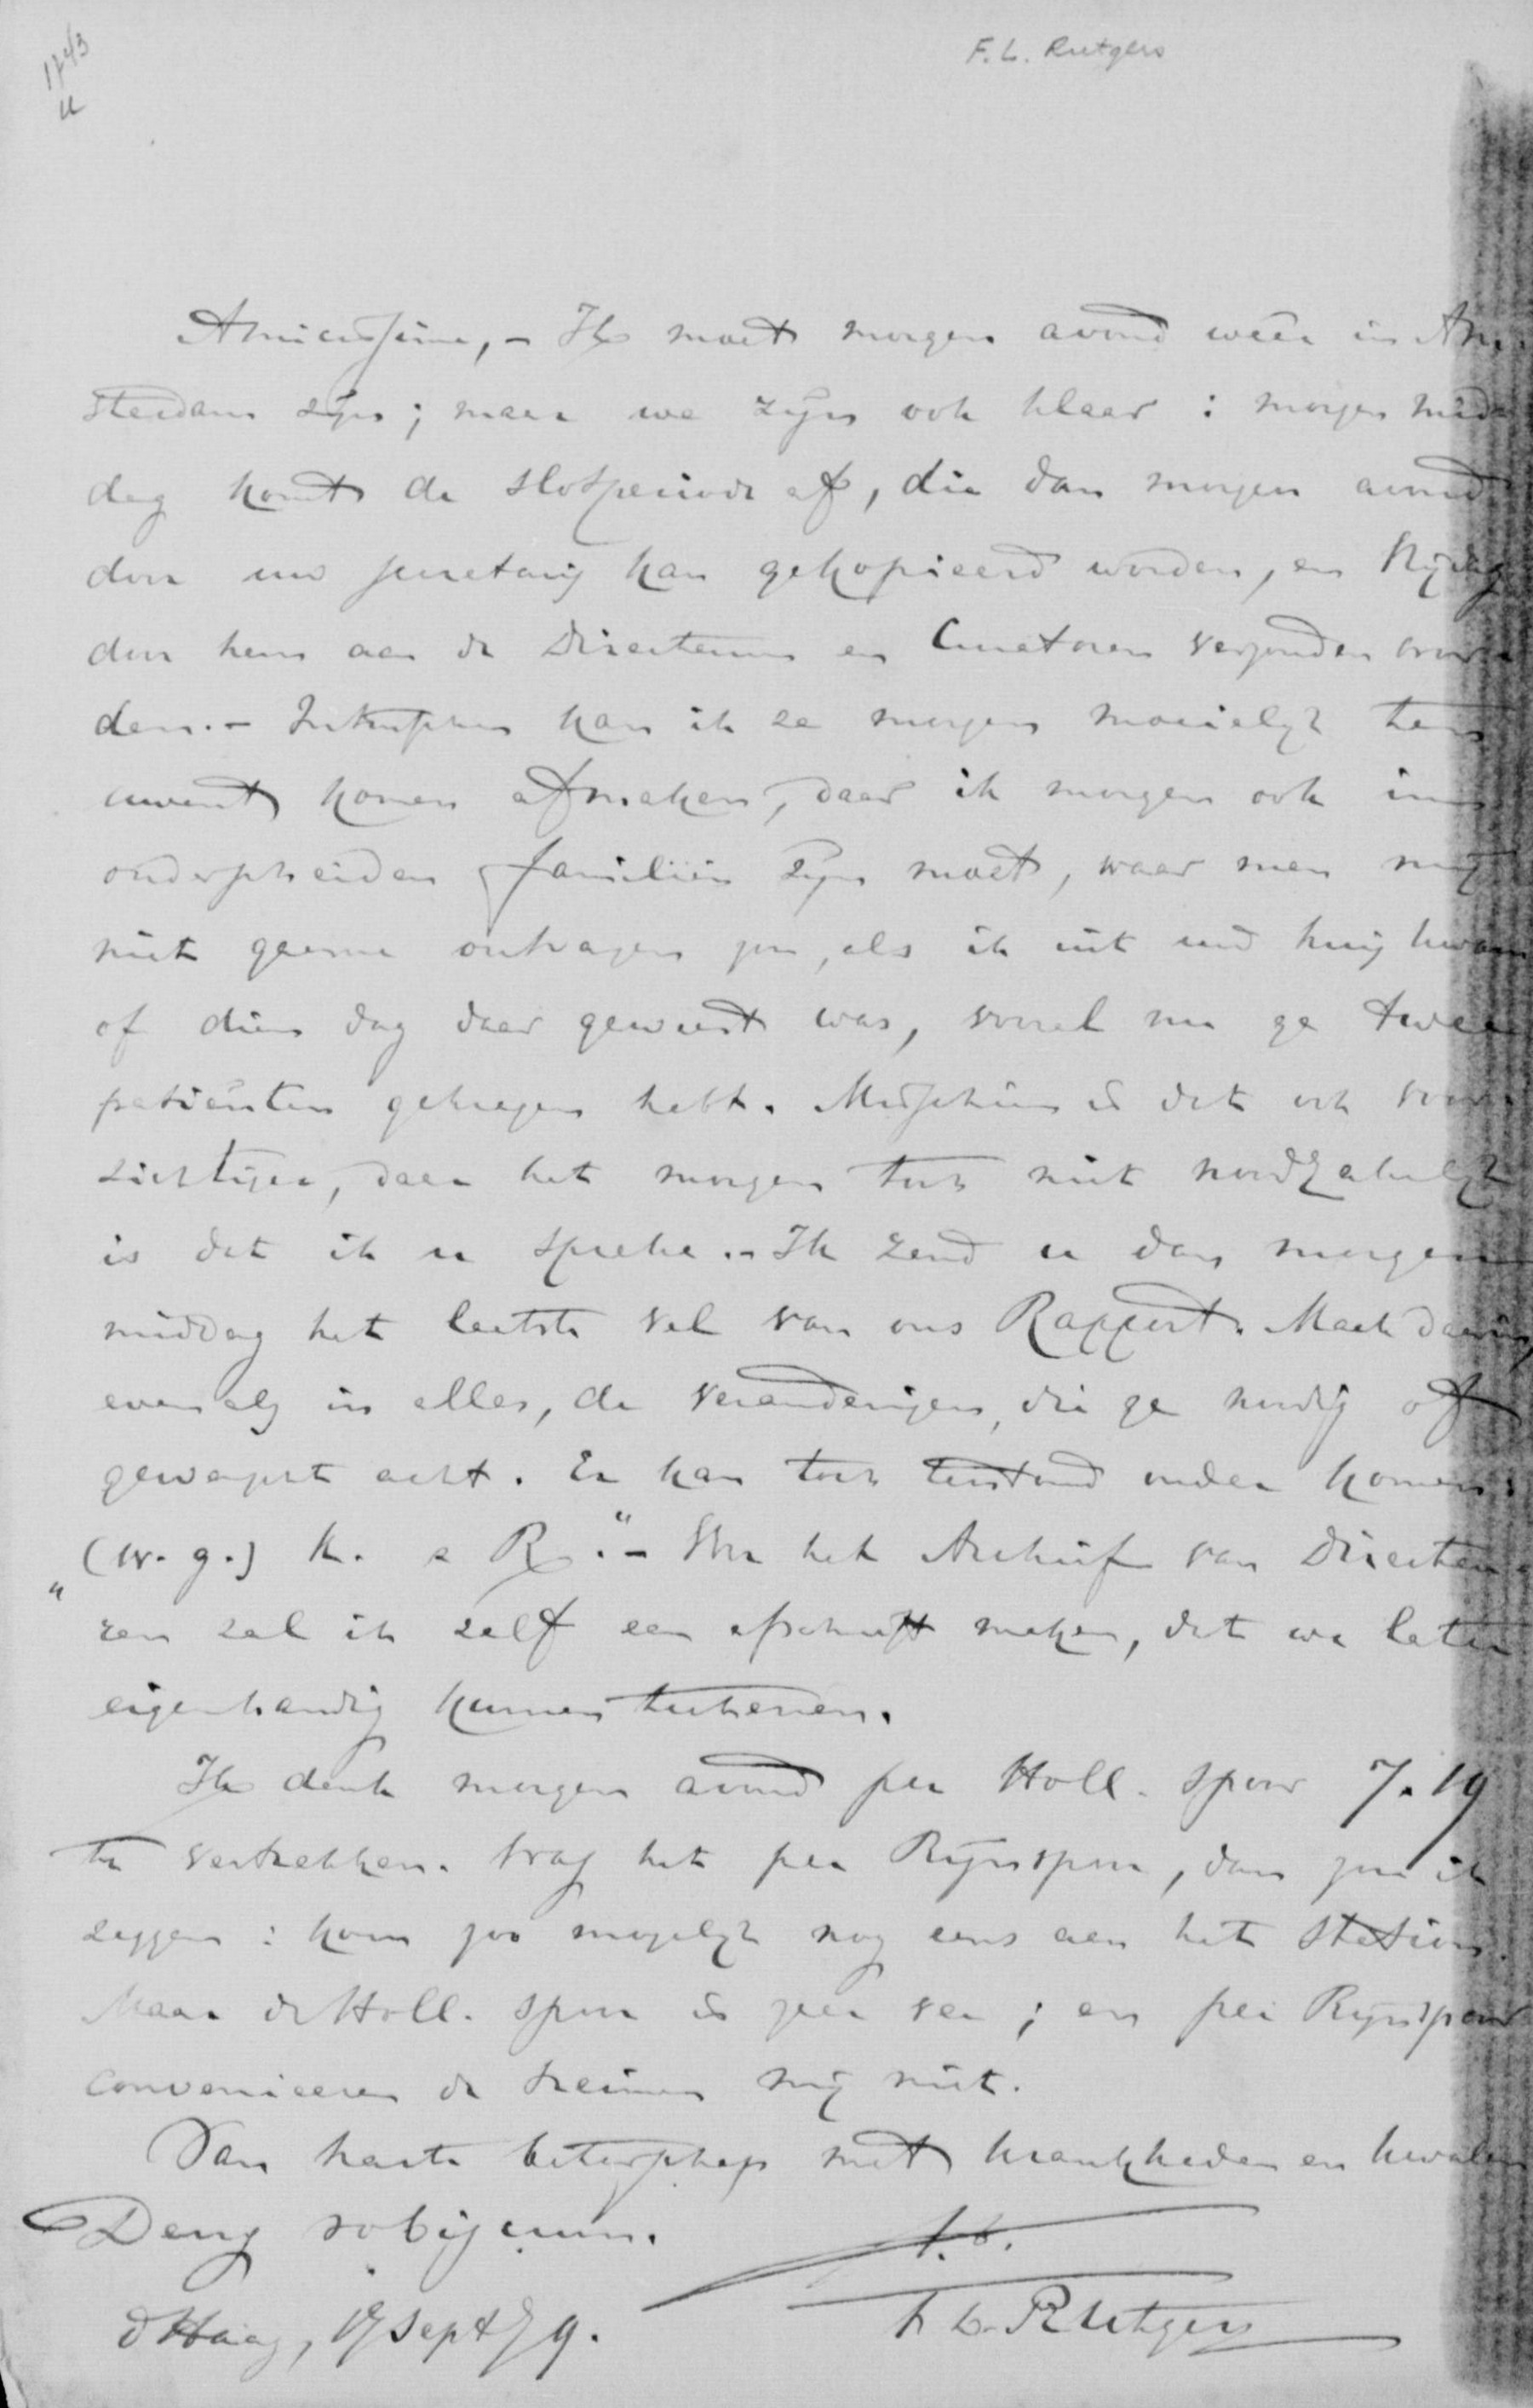 1743
u
F. L. Rutgers
Amicissime, - Ik moet morgen avond weêr in Am-
sterdam zijn; maar we zijn ook klaar: morgen mid-
dag komt de slotperiode af, die dan morgen avond
door uw secretaris kan gekopieerd worden, en Vrijdag
door hem aan de Directeuren en Curatoren verzonden wor-
den. - Intusschen kan ik ze morgen moeielijk ten
uwent komen afmaken, daar ik morgen ook in
onderscheiden familiën zijn moet, waar men mij
niet gaarne ontvangen zou, als ik uit uw huis kwam
of dien dag daar geweest was, vooral nu ge twee
patiënten gekregen hebt. Misschien is dat ook voor-
zichtiger, daar het morgen toch niet noodzakelijk
is dat ik u spreke. - Ik zend u dan morgen
middag het laatste vel van ons Rapport. Maak daarin,
evenals in alles, de veranderingen, die ge noodig of
gewenscht acht. Er kan toch terstond onder komen:
„(w. g.) K. & R.“ - Voor het Archief van Directeu-
ren zal ik zelf een afschrift maken, dat we later
eigenhandig kunnen teekenen.
Ik denk morgen avond per Holl. spoor 7.19
te vertrekken. Was het per Rijnspoor, dan zou ik
zeggen: kom zoo mogelijk nog eens aan het Station.
Maar de Holl. spoor is zeer ver; en per Rijnspoor
convenieeren de treinen mij niet.
Van harte beterschap met krankheden en kwalen
Deus vobiscum.
t.t.
d Haag, 17 Sept 79.
F L Rutgers